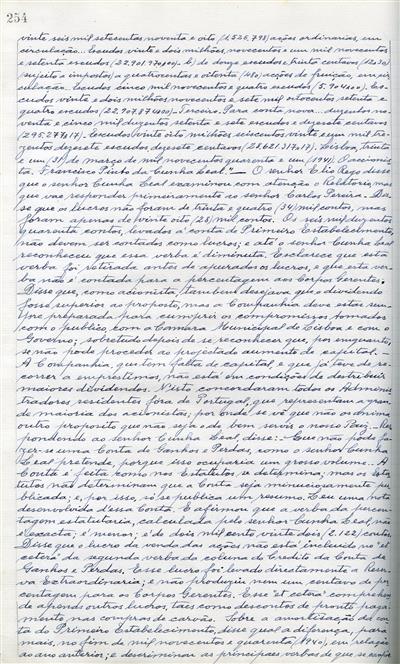 254
vinte seis mil setecentos noventa e oito (1.526.798) acções ordinarias, em
circulação... Escudos vinte e dois milhões novecentos e um mil novecentos
e setenta escudos (22.901.970$00). - b) de doze escudos e trinta centavos (12$30)
(sujeito a impostos) a quatrocentos e oitenta (480) acções de fruição, em cir
culação. Escudos cinco mil novecentos e quatro escudos (5.904$00). Es-
cudos vinte e dois milhões novecentos e sete mil oitocentos setenta e
quatro escudos (22.907.874$00). - Terceiro. Para conta nova... duzentos no-
venta e cinco mil duzentos setenta e sete escudos e dezasete centavos
(295.277$17). Escudos vinte oito milhões seiscentos vinte e um mil tre-
zentos dezasete escudos, dezasete centavos (28.621.317$17). Lisboa, trinta
e um (31) de março de mil novecentos quarenta e um (1941). O accionis
ta, Francisco Pinto da Cunha Leal." — O senhor Elio Rego disse
que o senhor Cunha Leal examinou com atenção o Relatorio, mas
que vae responder primeiramente ao senhor Carlos Pereira. - Dis-
se que os lucros não foram de trinta e quatro (34) mil contos, mas
foram apenas de vinte oito (28) mil contos. Os seis mil duzentos
quarenta contos, levados á conta de Primeiro Estabelecimento,
não devem ser contados como lucros; e até o senhor Cunha Leal
reconheceu que essa verba é diminuta. Esclarece que esta
verba foi retirada antes de apurados os lucros, e que esta ver-
ba não é contada para a percentagem aos Corpos Gerentes.
Disse que, como acionista, tambem desejava que o dividendo
fosse superior ao proposto, mas a Companhia deve estar sem-
pre preparada para cumprir os compromissos tomados
com o publico, com a Camara Municipal de Lisboa e com o
Governo; sobretudo depois de se reconhecer que, por emquanto,
se não pode proceder ao projectado aumento de capital. -
A Companhia, que tem falta de capital, e que já teve de re-
correr a emprestimos, não está em condições de distribuir
maiores dividendos. N'isto concordaram todos os Adminis
tradores residentes fóra de Portugal, que representam a gran-
de maioria dos acionistas; por onde se vê que não os anima
outro proposito que não seja o de bem servir o nosso Paiz. - Res-
pondendo ao senhor Cunha Leal, disse: - Que não pode fa-
zer-se uma Conta de Ganhos e Perdas, como o senhor Cunha
Leal pretende, porque isso ocuparia um grosso volume. A
Conta é feita como nos Estatutos se determina, mas os Esta
tutos não determinam que a Conta seja minuciosamente pu
blicada; e, por isso, só se publica um resumo. Leu uma nota
desenvolvida d'essa Conta. E afirmou que a verba da percen-
tagem estatutaria, calculada pelo senhor Cunha Leal, não
é exacta; é menor; é de dois mil cento vinte dois (2.122) contos.
Disse que o lucro da venda das acções não está incluido no "et
cetera" da segunda verba da coluna do Credito da Conta de
Ganhos e Perdas. Esse lucro foi levado directamente a Reser-
va Extraordinaria; e não produziu nem um centavo de per-
centagem para os Corpos Gerentes. Esse "et cetera" comprehen
de apenas outros lucros, taes como descontos de pronto paga-
mento nas compras de carvão. Sobre a amortisação da con-
ta do Primeiro Estabelecimento, disse qual a diferença, para
mais, no fim de mil novecentos e quarenta (1940), em relação
ao ano anterior; e descriminou as principaes verbas de que se compõe